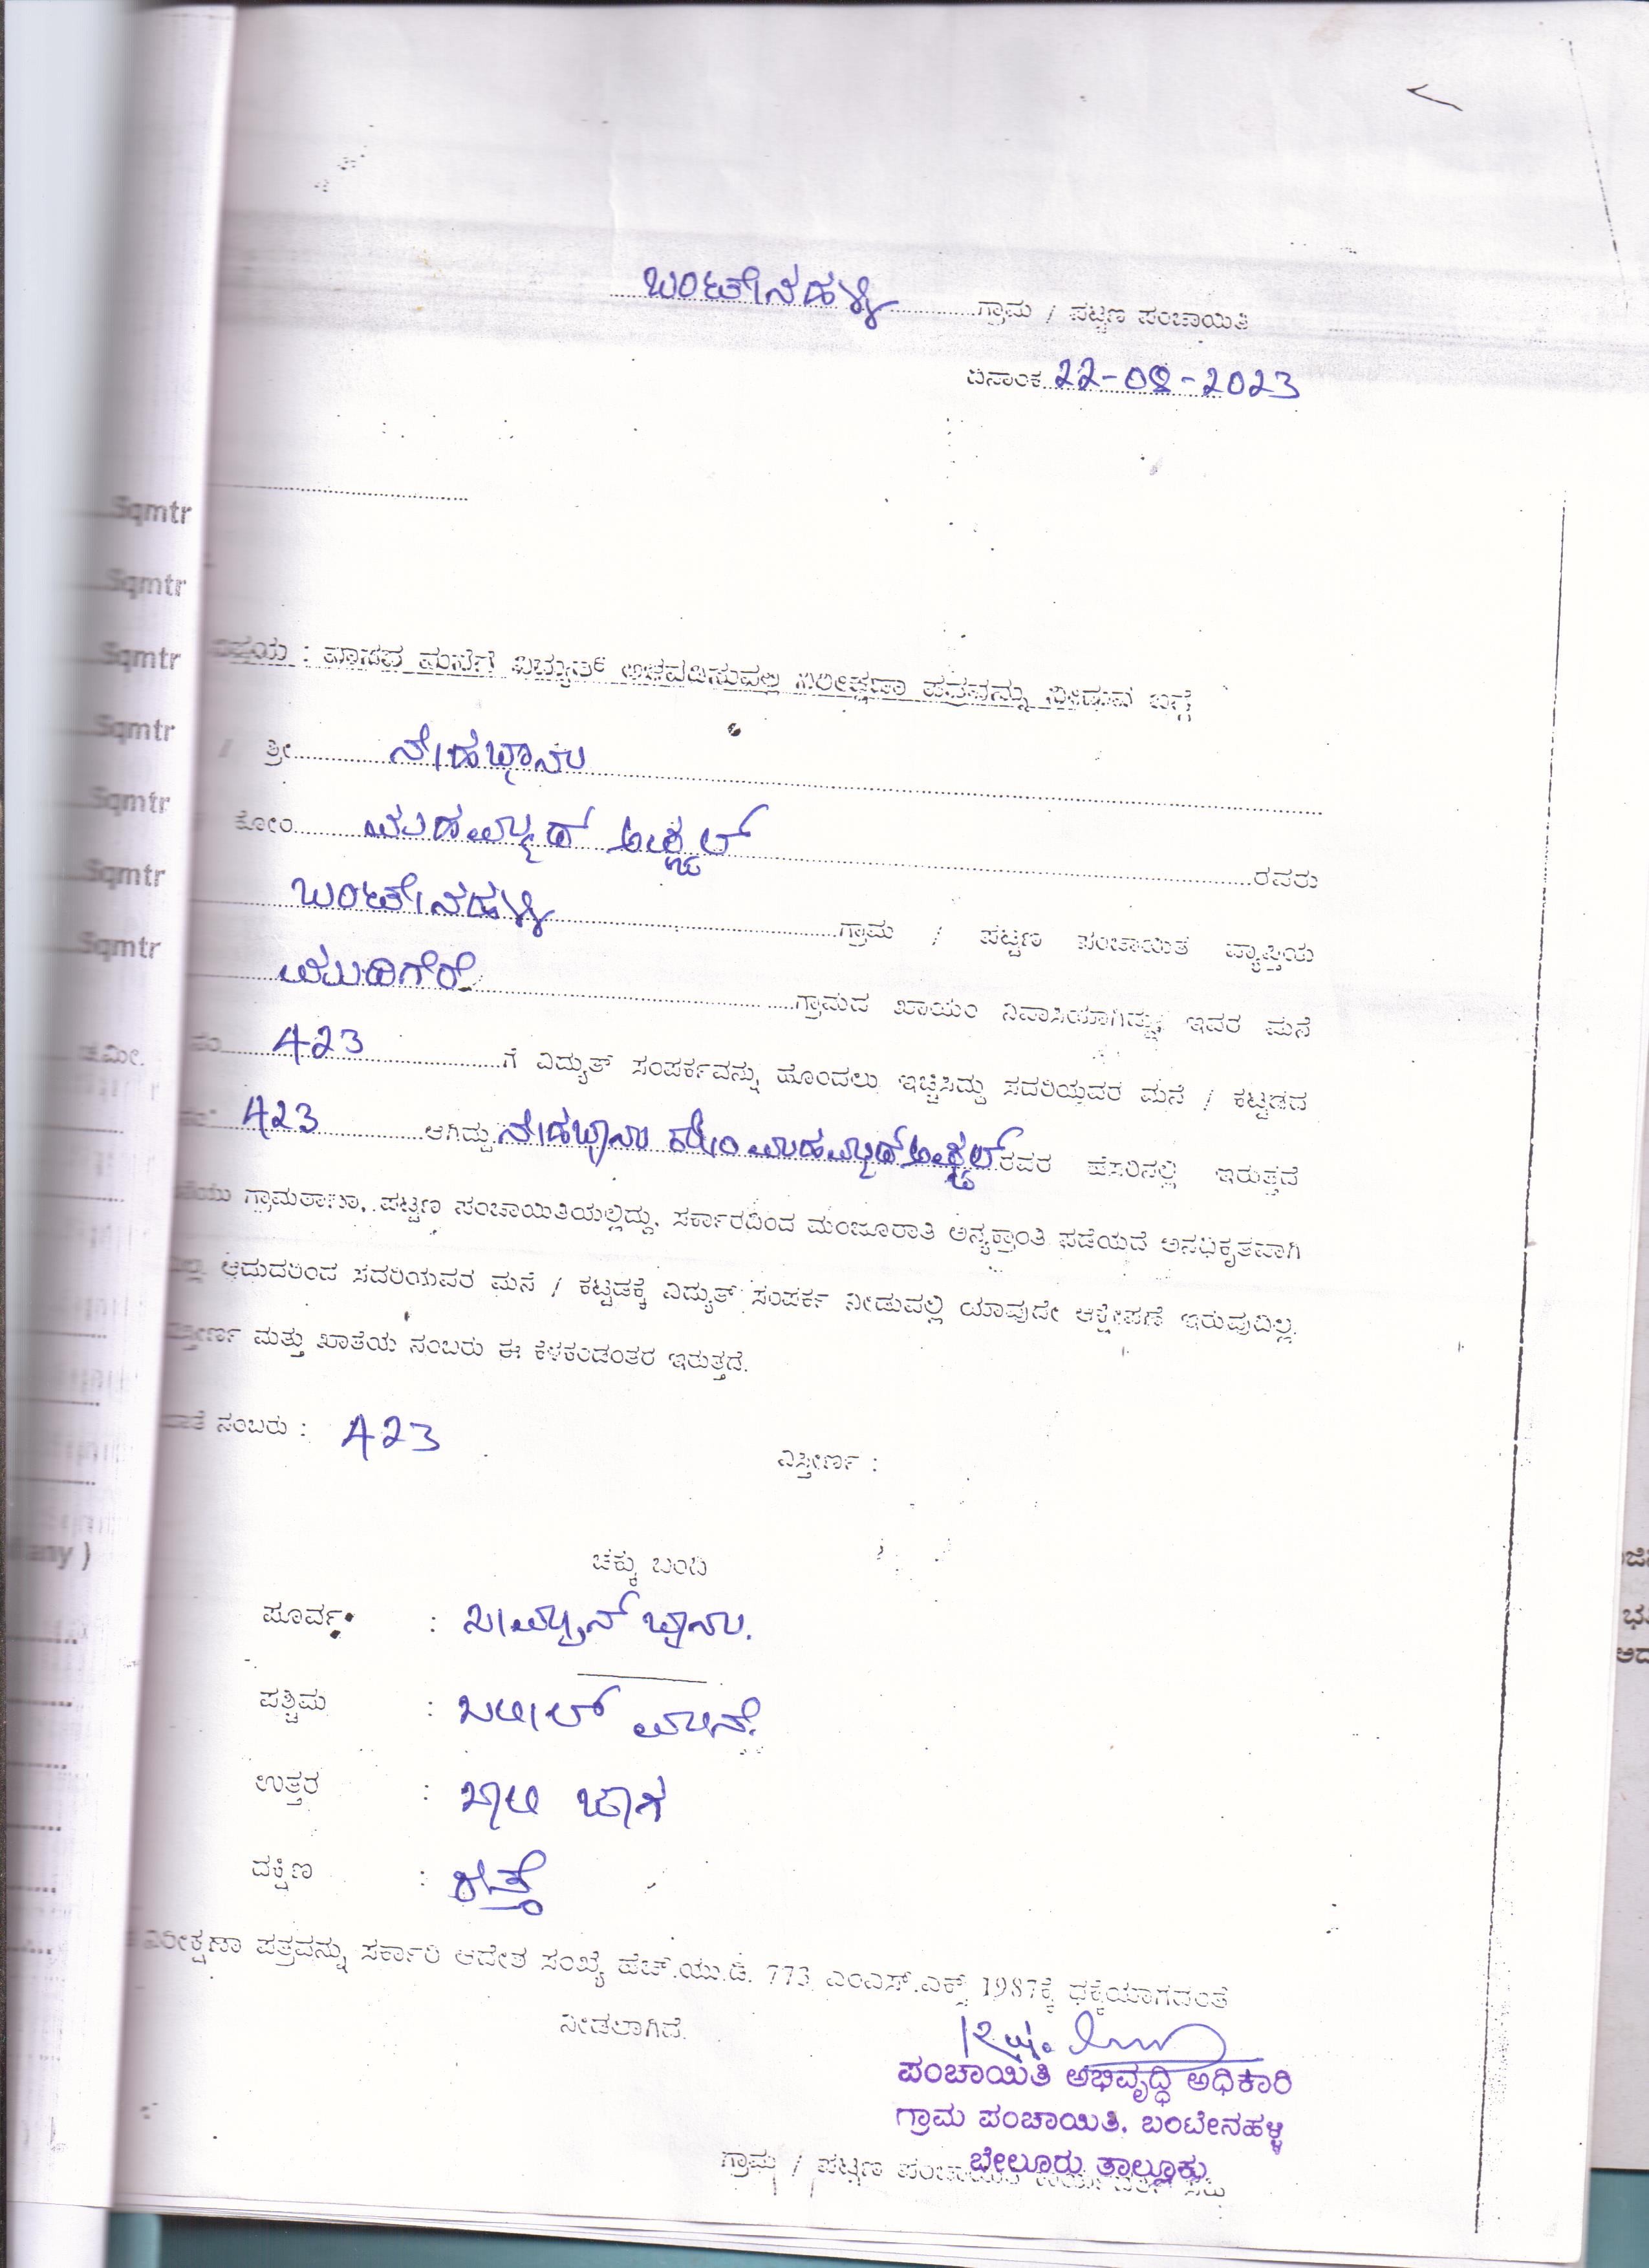 ಬಂಟೇನಹಳ್ಳಿ ಗ್ರಾಮ / ಪಟ್ಟಣ ಪಂಚಾಯಿತಿ
ದಿನಾಂಕ 22-08-2023
Sqmtr
Sqmtr
Sqmtr
Sqmtr
Sqmtr
Sqmtr
Sqmtr
ವಿಷಯ : ವಾಸದ ಮನೆಗೆ ವಿದ್ಯುತ್ ಅಳವಡಿಸುವಲ್ಲಿ ನಿರೀಕ್ಷಣಾ ಪತ್ರವನ್ನು ನೀಡುವ ಬಗ್ಗೆ
ಶ್ರೀ ನೇಹಭಾನು
ಕೋಂ ಮಹಮ್ಮದ್ ರವರು
ಬಂಟೇನಹಳ್ಳಿ ಗ್ರಾಮ / ಪಟ್ಟಣ ಪಂಚಾಯಿತ ವ್ಯಾಪ್ತಿಯ
ಗ್ರಾಮದ ಖಾಯಂ ನಿವಾಸಿಯಾಗಿದ್ದು, ಇವರ ಮನೆ
ನಂ 423 ಗೆ ವಿದ್ಯುತ್ ಸಂಪರ್ಕವನ್ನು ಹೊಂದಲು ಇಚ್ಚಿಸಿದ್ದು ಸದರಿಯವರ ಮನೆ / ಕಟ್ಟಡದ
423 ಆಗಿದ್ದು ನೇಹಭಾನು ಕೋಂ ಮಹಮ್ಮದ್ ರವರ ಹೆಸರಿನಲ್ಲಿ ಇರುತ್ತದೆ
ಗ್ರಾಮಠಾಣಾ, ಪಟ್ಟಣ ಪಂಚಾಯಿತಿಯಲ್ಲಿದ್ದು, ಸರ್ಕಾರದಿಂದ ಮಂಜೂರಾತಿ ಅನ್ಯಕ್ರಾಂತಿ ಪಡೆಯದೆ ಅನಧಿಕೃತವಾಗಿ
ಆದುದರಿಂದ ಸದರಿಯವರ ಮನೆ / ಕಟ್ಟಡಕ್ಕೆ ವಿದ್ಯುತ್ ಸಂಪರ್ಕ ನೀಡುವಲ್ಲಿ ಯಾವುದೇ ಆಕ್ಷೇಪಣೆ ಇರುವುದಿಲ್ಲ.
ಮತ್ತು ಖಾತೆಯ ನಂಬರು ಈ ಕೆಳಕಂಡಂತರ ಇರುತ್ತದೆ.
ನಂಬರು : 423
ವಿಸ್ತೀರ್ಣ :
ಚಕ್ಕು ಬಂದಿ
ಪೂರ್ವ : ಬಾನು.
ಪಶ್ಚಿಮ :
ಉತ್ತರ : ಖಾಲಿ ಜಾಗ
ದಕ್ಷಿಣ : ರಸ್ತೆ
ನಿರೀಕ್ಷಣಾ ಪತ್ರವನ್ನು ಸರ್ಕಾರಿ ಆದೇಶ ಸಂಖ್ಯೆ ಹೆಚ್.ಯು.ಡಿ. 773 ಎಂಎನ್.ಎಕ್ಸ್ 1987ಕ್ಕೆ ಧಕ್ಕೆಯಾಗದಂತೆ
ನೀಡಲಾಗಿದೆ.
ಪಂಚಾಯಿತಿ ಅಭಿವೃದ್ಧಿ ಅಧಿಕಾರಿ
ಗ್ರಾಮ ಪಂಚಾಯಿತಿ, ಬಂಟೇನಹಳ್ಳಿ
ಬೇಲೂರು ತಾಲ್ಲೂಕು
ಗ್ರಾಮ / ಪಟ್ಟಣ